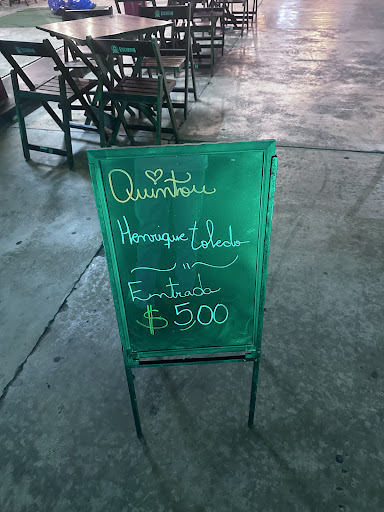 Quintou
Henrique Toledo
Entrada
$ 5,00